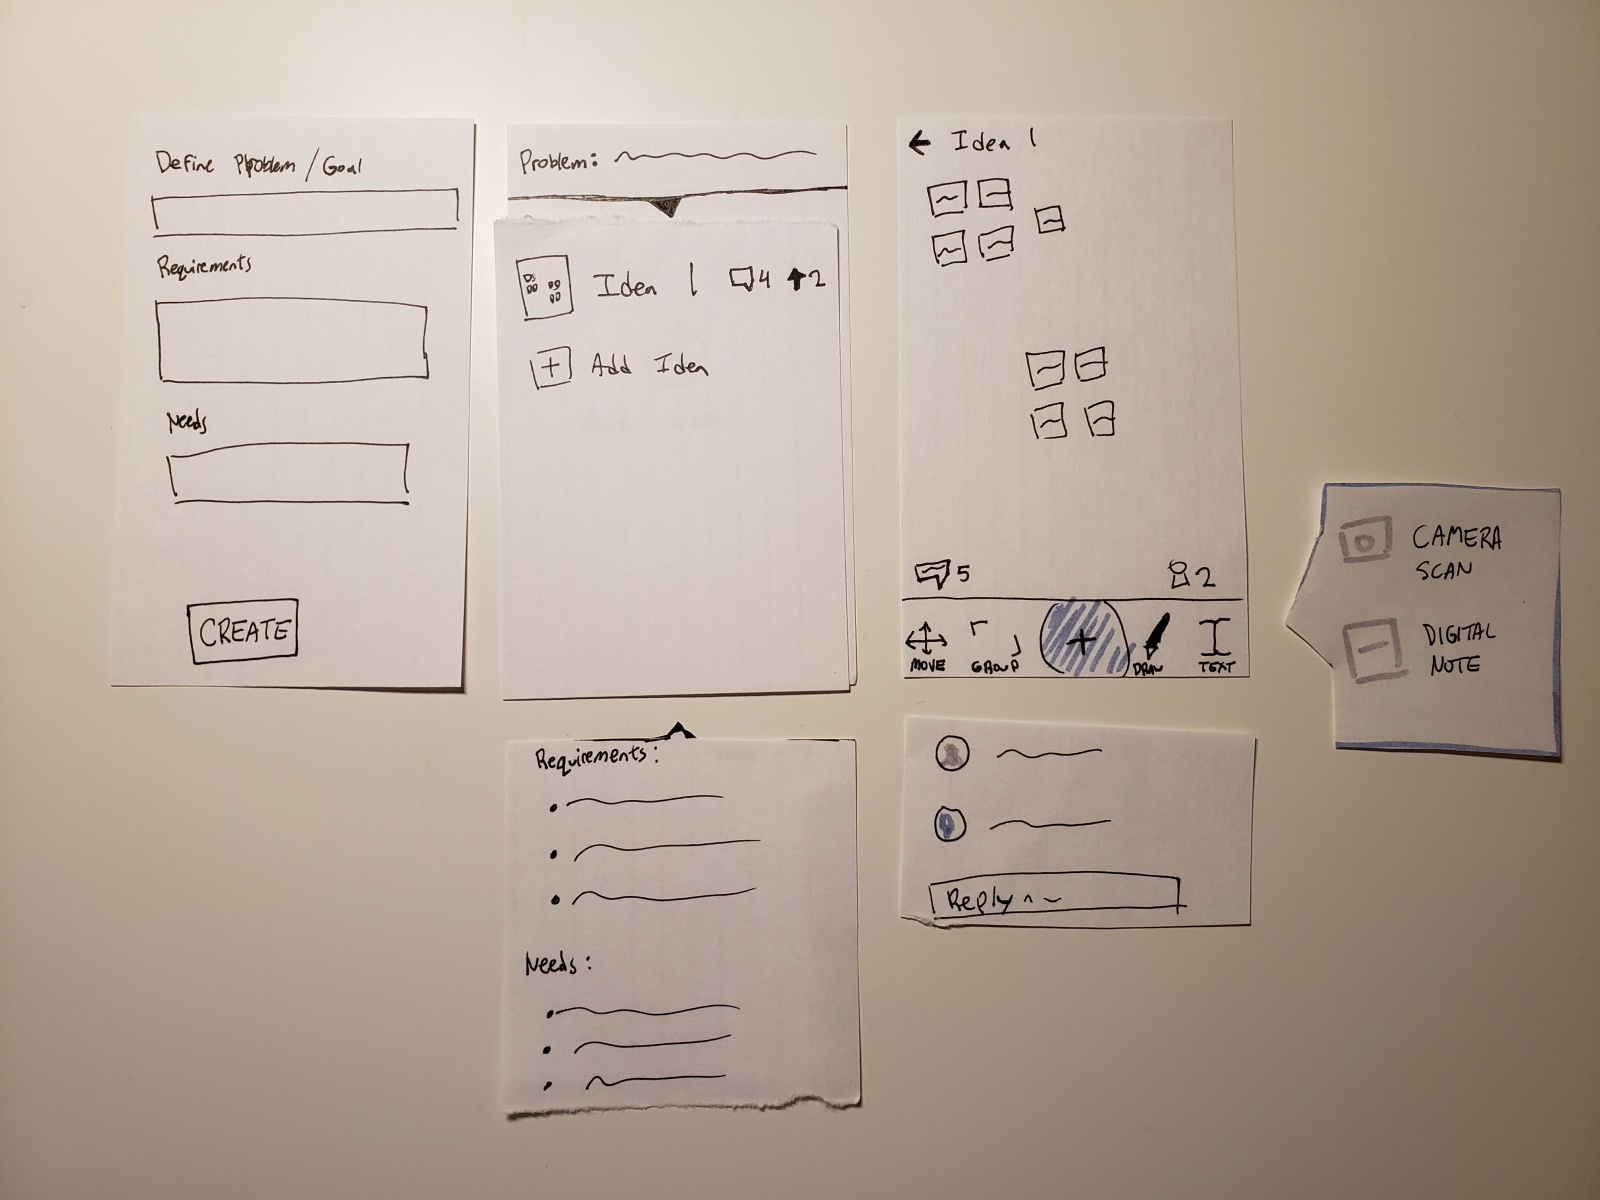 Define Problem / Goal
Requirements
Needs
CREATE
Problem:
Idea 1 4 2
+ Add Idea
Requirements:
Needs:
← Idea 1
5 2
MOVE GROUP + DRAW TEXT
Reply
CAMERA
SCAN
DIGITAL
NOTE